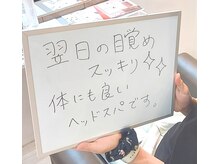 翌日の目覚め
スッキリ✧✧
体にも良い
ヘッドスパです。